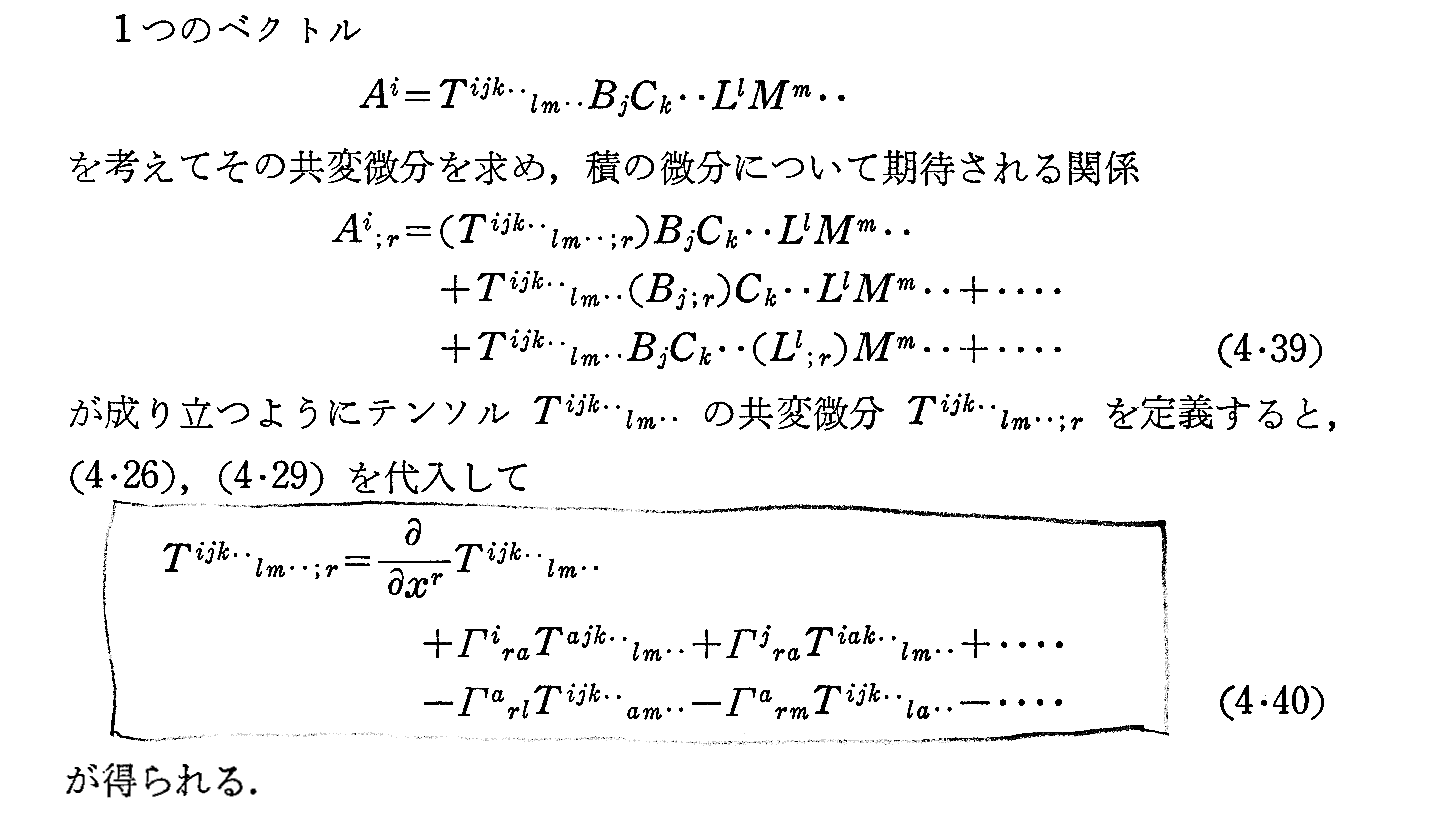 1つのベクトル
Aⁱ=Tⁱʲᵏ‥ₗₘ‥BⱼCₖ‥LˡMᵐ‥
を考えてその共変微分を求め，積の微分について期待される関係
Aⁱ;ᵣ=(Tⁱʲᵏ‥ₗₘ‥;ᵣ)BⱼCₖ‥LˡMᵐ‥
+Tⁱʲᵏ‥ₗₘ‥(Bⱼ;ᵣ)Cₖ‥LˡMᵐ‥+‥‥
+Tⁱʲᵏ‥ₗₘ‥BⱼCₖ‥(Lˡ;ᵣ)Mᵐ‥+‥‥ (4·39)
が成り立つようにテンソル Tⁱʲᵏ‥ₗₘ‥ の共変微分 Tⁱʲᵏ‥ₗₘ‥;ᵣ を定義すると，
(4·26)，(4·29) を代入して
Tⁱʲᵏ‥ₗₘ‥;ᵣ=∂/∂xʳ Tⁱʲᵏ‥ₗₘ‥
+ΓⁱᵣₐTᵃʲᵏ‥ₗₘ‥+ΓʲᵣₐTⁱᵃᵏ‥ₗₘ‥+‥‥
−ΓᵃᵣₗTⁱʲᵏ‥ₐₘ‥−ΓᵃᵣₘTⁱʲᵏ‥ₗₐ‥−‥‥ (4·40)
が得られる．